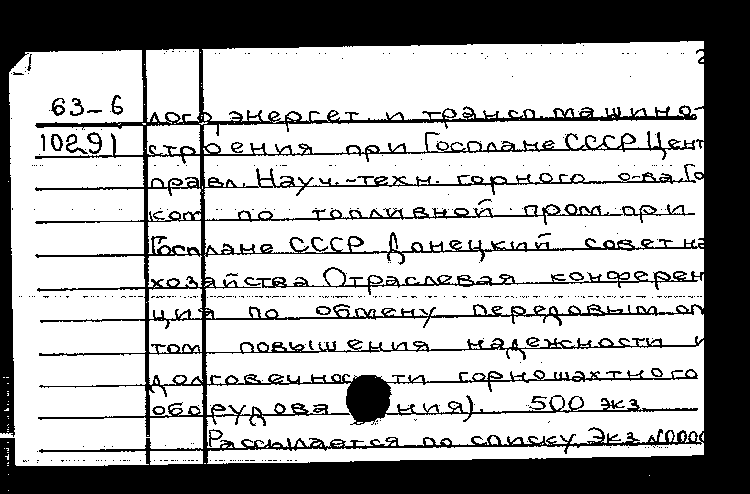 2
63-6 лого, энергет. и трансп. машино-
10291 строения при Госплане СССР Цент
правл. Науч.-техн. горного о-ва. Го
ком по топливной пром. при
Госплане СССР Донецкий совет на
хозяйства Отраслевая конферен
ция по обмену передовым оп
том повышения надежности и
долговечности горношахтного
оборудования). 500 экз.
Рассылается по списку. Экз. №000